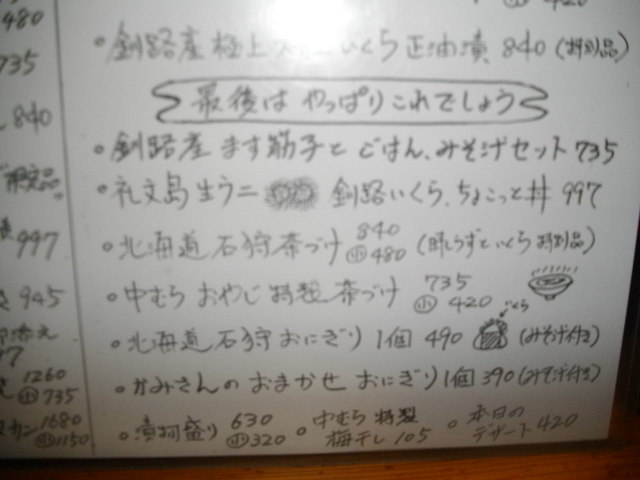 420
480
・釧路産極上 いくら正油漬 840 (特別品)
735
最後は やっぱりこれでしょう
840
・釧路産 ます筋子と ごはん、みそ汁セット 735
限定品
・礼文島生ウニ 釧路いくら、ちょこっと丼 997
997
・北海道 石狩茶づけ 840 小480 (時しらずといくら 特別品)
945
・中むら おやじ 特製 茶づけ 735 小420
いくら
・北海道 石狩おにぎり 1個 490 (みそ汁付き)
1260
小735
・かみさんの おまかせ おにぎり 1個 390 (みそ汁付き)
1680
小1150
・漬物盛り 630 小320 ・中むら 特製 梅干し 105 ・本日の デザート 420